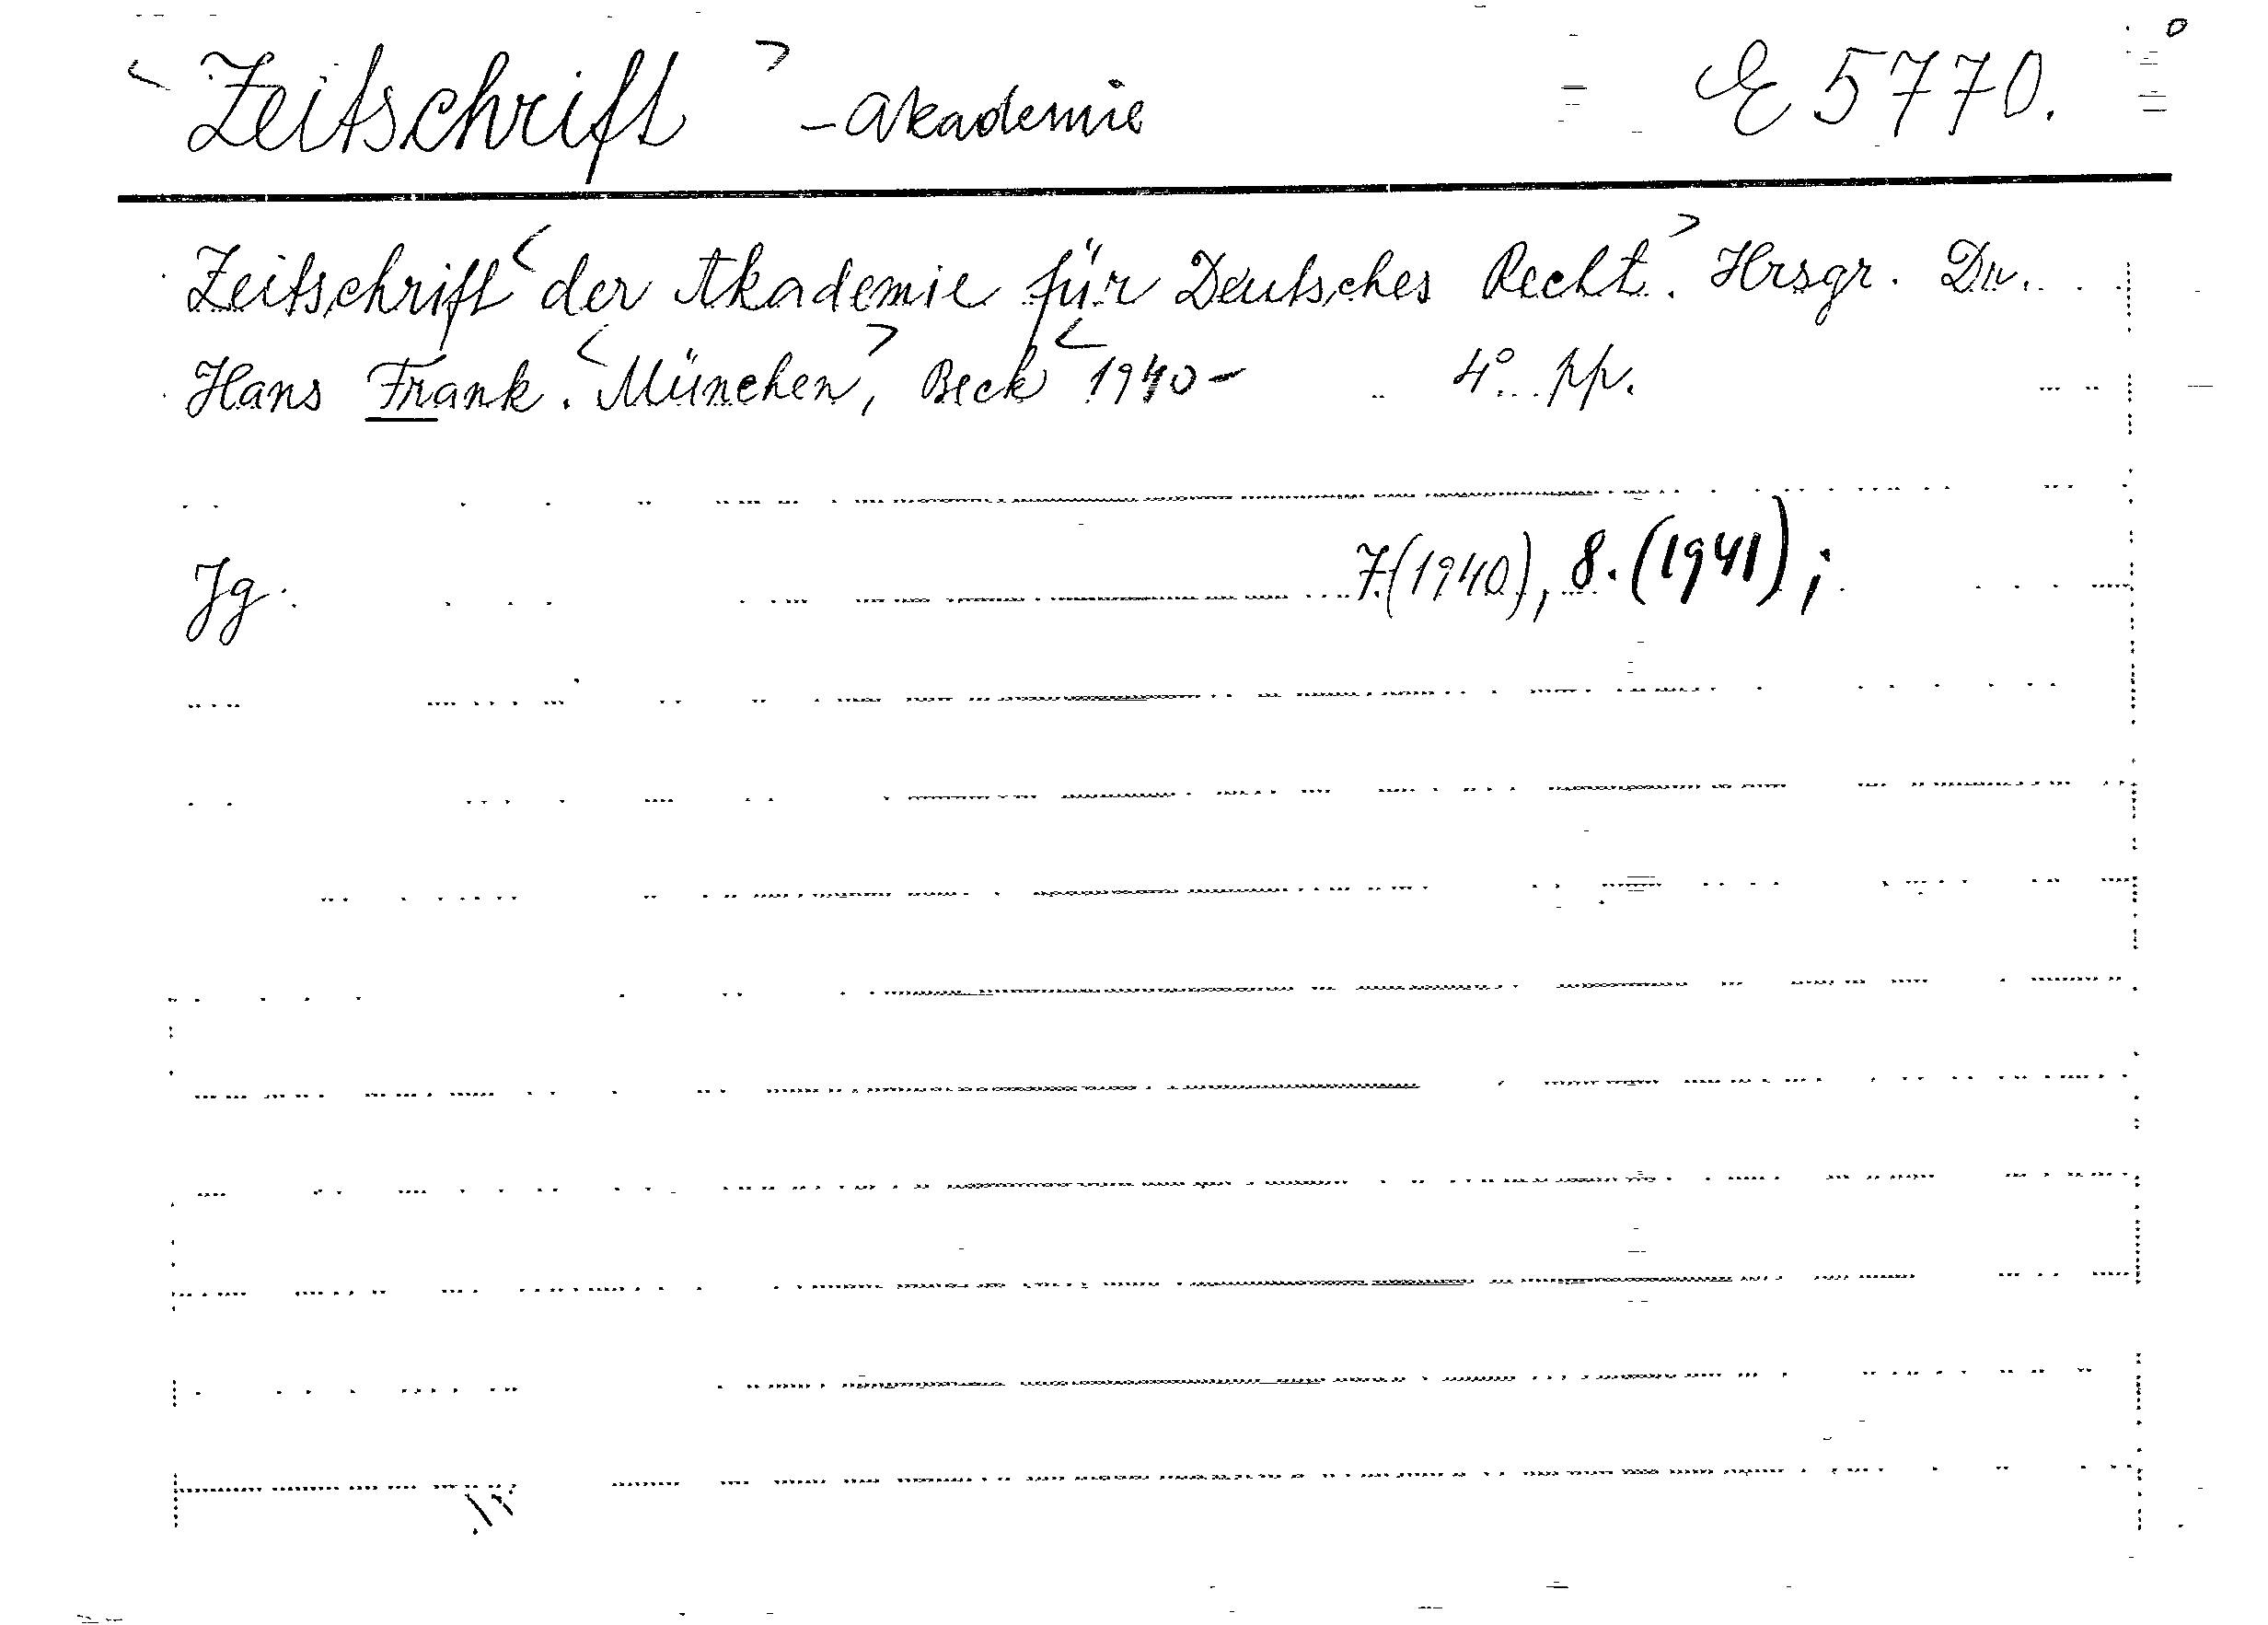 <Zeitschrift> - Akademie E 5770.
Zeitschrift <der Akademie für Deutsches Recht.> Hrsgr. Dr.
Hans Frank. <München>, Beck <1940- 4° pp.
Jg. 7.(1940), 8.(1941);